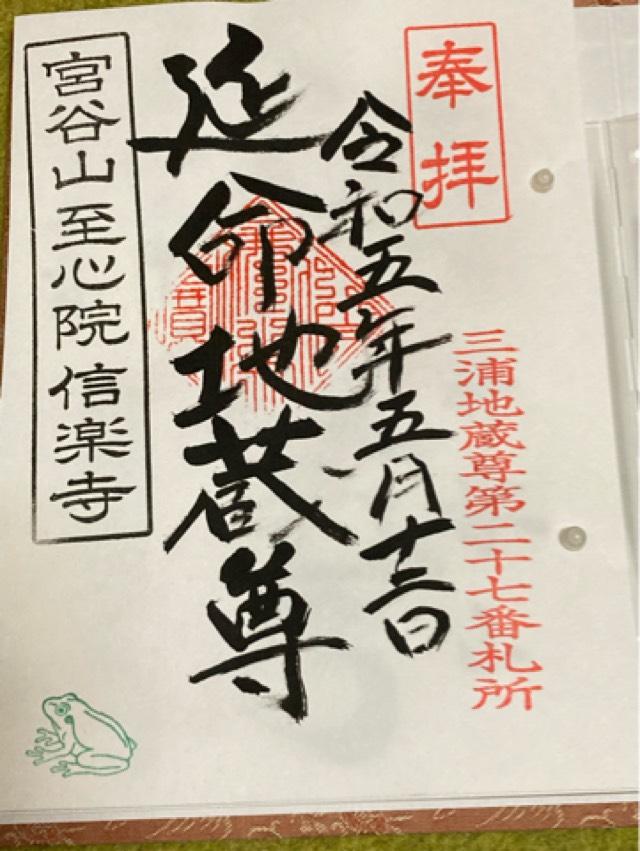 奉拝
三浦地蔵尊第二十七番札所
令和五年五月十三日
延命地蔵尊
宮谷山至心院信楽寺